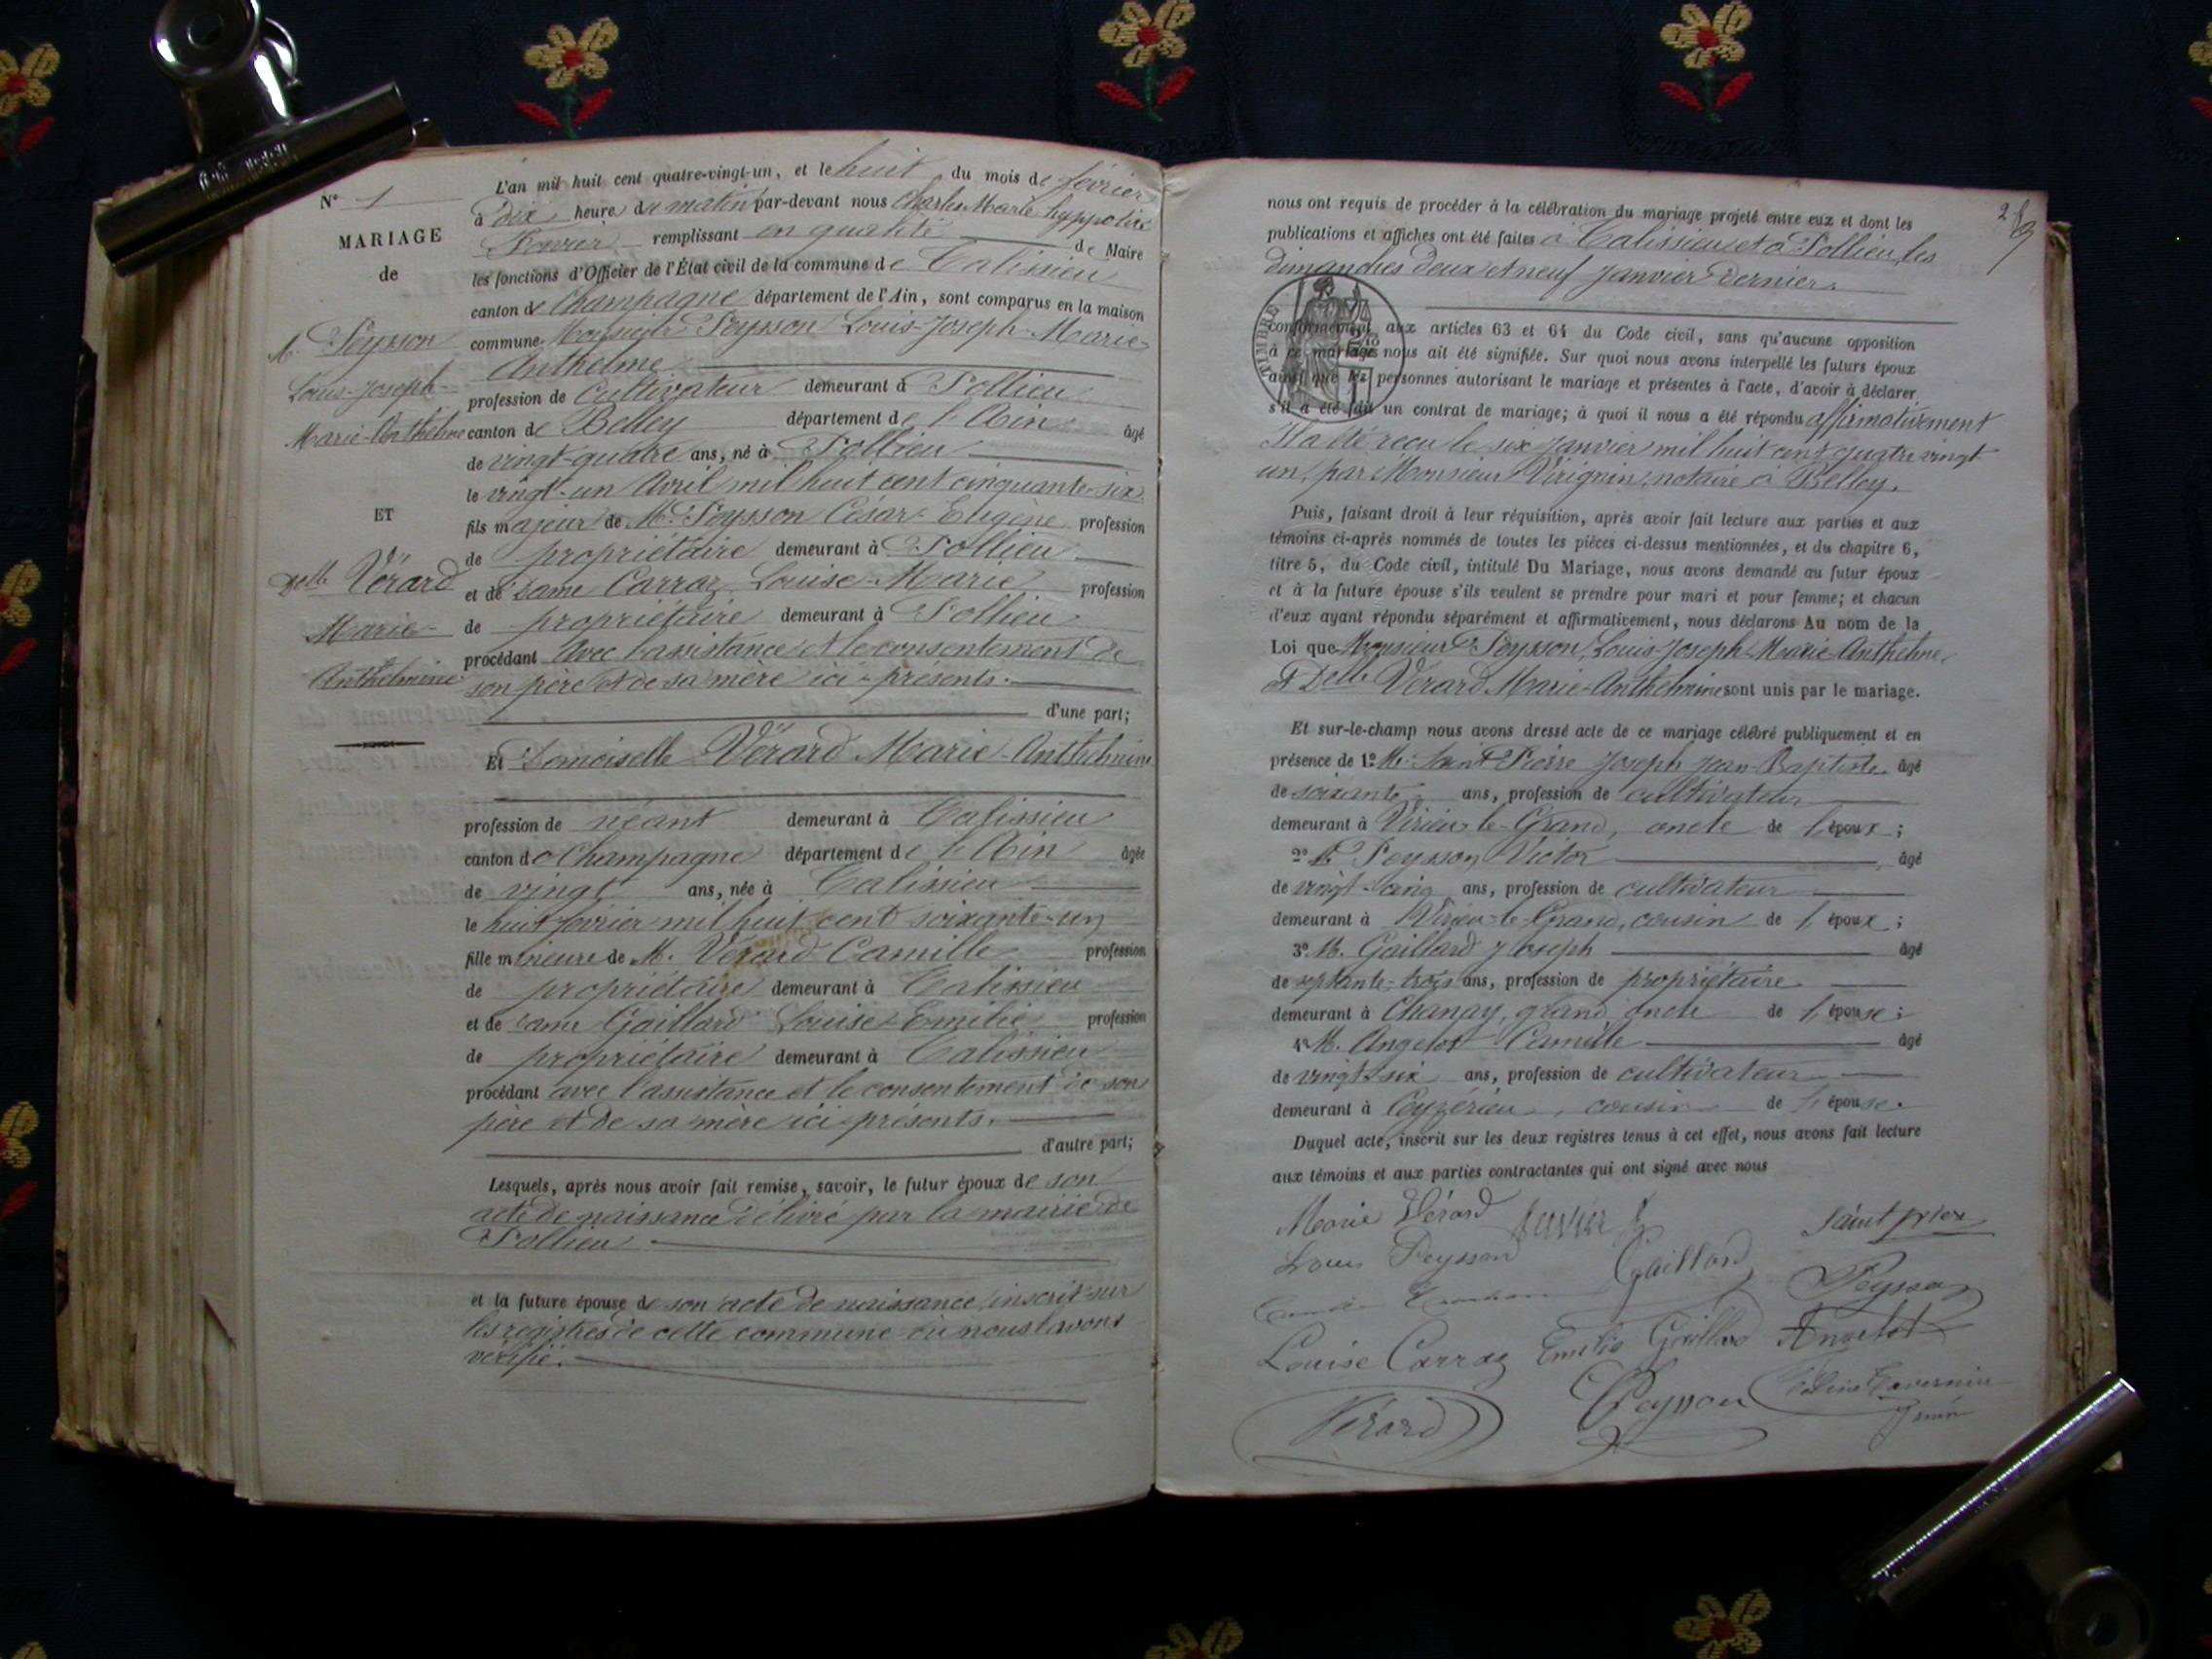 N° 1
MARIAGE
de
M. Peysson
Louis-Joseph-
Marie-Anthelme
ET
Delle Vérard
Marie-
Anthelmine
L'an mil huit cent quatre-vingt-un, et le huit du mois de février
à dix heure du matin par-devant nous Charles Marie hyppolite
remplissant en qualité de Maire
les fonctions d'Officier de l'État civil de la commune de Talissieu
canton de Champagne département de l'Ain, sont comparus en la maison
commune Monsieur Peysson Louis-Joseph-Marie-
Anthelme
profession de Cultivateur demeurant à Pollieu
canton de Belley département de l'Ain âgé
de vingt-quatre ans, né à Pollieu
le vingt-un Avril mil huit cent cinquante-six
fils majeur de M. Peysson César-Eugène profession
de propriétaire demeurant à Pollieu
et de Dame Carraz Louise-Marie profession
de propriétaire demeurant à Pollieu
procédant avec l'assistance et le consentement de
son père et de sa mère ici-présents.
d'une part;
Et Demoiselle Vérard Marie-Anthelmine
profession de néant demeurant à Talissieu
canton de Champagne département de l'Ain âgée
de vingt ans, née à Talissieu
le huit février mil huit cent soixante-un
fille mineure de M. Vérard Camille profession
de propriétaire demeurant à Talissieu
et de Dame Gaillard Louise-Emilie profession
de propriétaire demeurant à Talissieu
procédant avec l'assistance et le consentement de son
père et de sa mère ici présents.
d'autre part;
Lesquels, après nous avoir fait remise, savoir, le futur époux de son
acte de naissance délivré par la mairie de
Pollieu
et la future épouse de son acte de naissance inscrit sur
les registres de cette commune où nous l'avons
vérifié.
nous ont requis de procéder à la célébration du mariage projeté entre eux et dont les
publications et affiches ont été faites à Talissieu et à Pollieu, les
dimanches deux et neuf janvier dernier.
TIMBRE
conformément aux articles 63 et 64 du Code civil, sans qu'aucune opposition
à ce mariage nous ait été signifiée. Sur quoi nous avons interpellé les futurs époux
ainsi que les personnes autorisant le mariage et présentes à l'acte, d'avoir à déclarer
s'il a été fait un contrat de mariage; à quoi il nous a été répondu affirmativement
Il a été reçu le six janvier mil huit cent quatre vingt
un, par Monsieur Virignin, notaire à Belley.
Puis, faisant droit à leur réquisition, après avoir fait lecture aux parties et aux
témoins ci-après nommés de toutes les pièces ci-dessus mentionnées, et du chapitre 6,
titre 5, du Code civil, intitulé Du Mariage, nous avons demandé au futur époux
et à la future épouse s'ils veulent se prendre pour mari et pour femme; et chacun
d'eux ayant répondu séparément et affirmativement, nous déclarons Au nom de la
Loi que Monsieur Peysson, Louis-Joseph-Marie-Anthelme,
et Delle Vérard Marie-Anthelmine sont unis par le mariage.
Et sur-le-champ nous avons dressé acte de ce mariage célébré publiquement et en
présence de 1° M. Saint Pierre Joseph Jean-Baptiste âgé
de soixante ans, profession de cultivateur
demeurant à Virieu-le-Grand, oncle de l'époux;
2° M. Peysson Victor âgé
de vingt-cinq ans, profession de cultivateur
demeurant à Virieu-le-Grand, cousin de l'époux;
3° M. Gaillard Joseph âgé
de septante-trois ans, profession de propriétaire
demeurant à Chanay, grand oncle de l'épouse;
4° M. Angelot Camille âgé
de vingt-six ans, profession de cultivateur
demeurant à Ceyzérieu, cousin de l'épouse.
Duquel acte, inscrit sur les deux registres tenus à cet effet, nous avons fait lecture
aux témoins et aux parties contractantes qui ont signé avec nous
Marie Vérard
Louis Peysson Gaillard Peysson
Louise Carraz Emilie Gaillard Angelot
Vérard Peysson